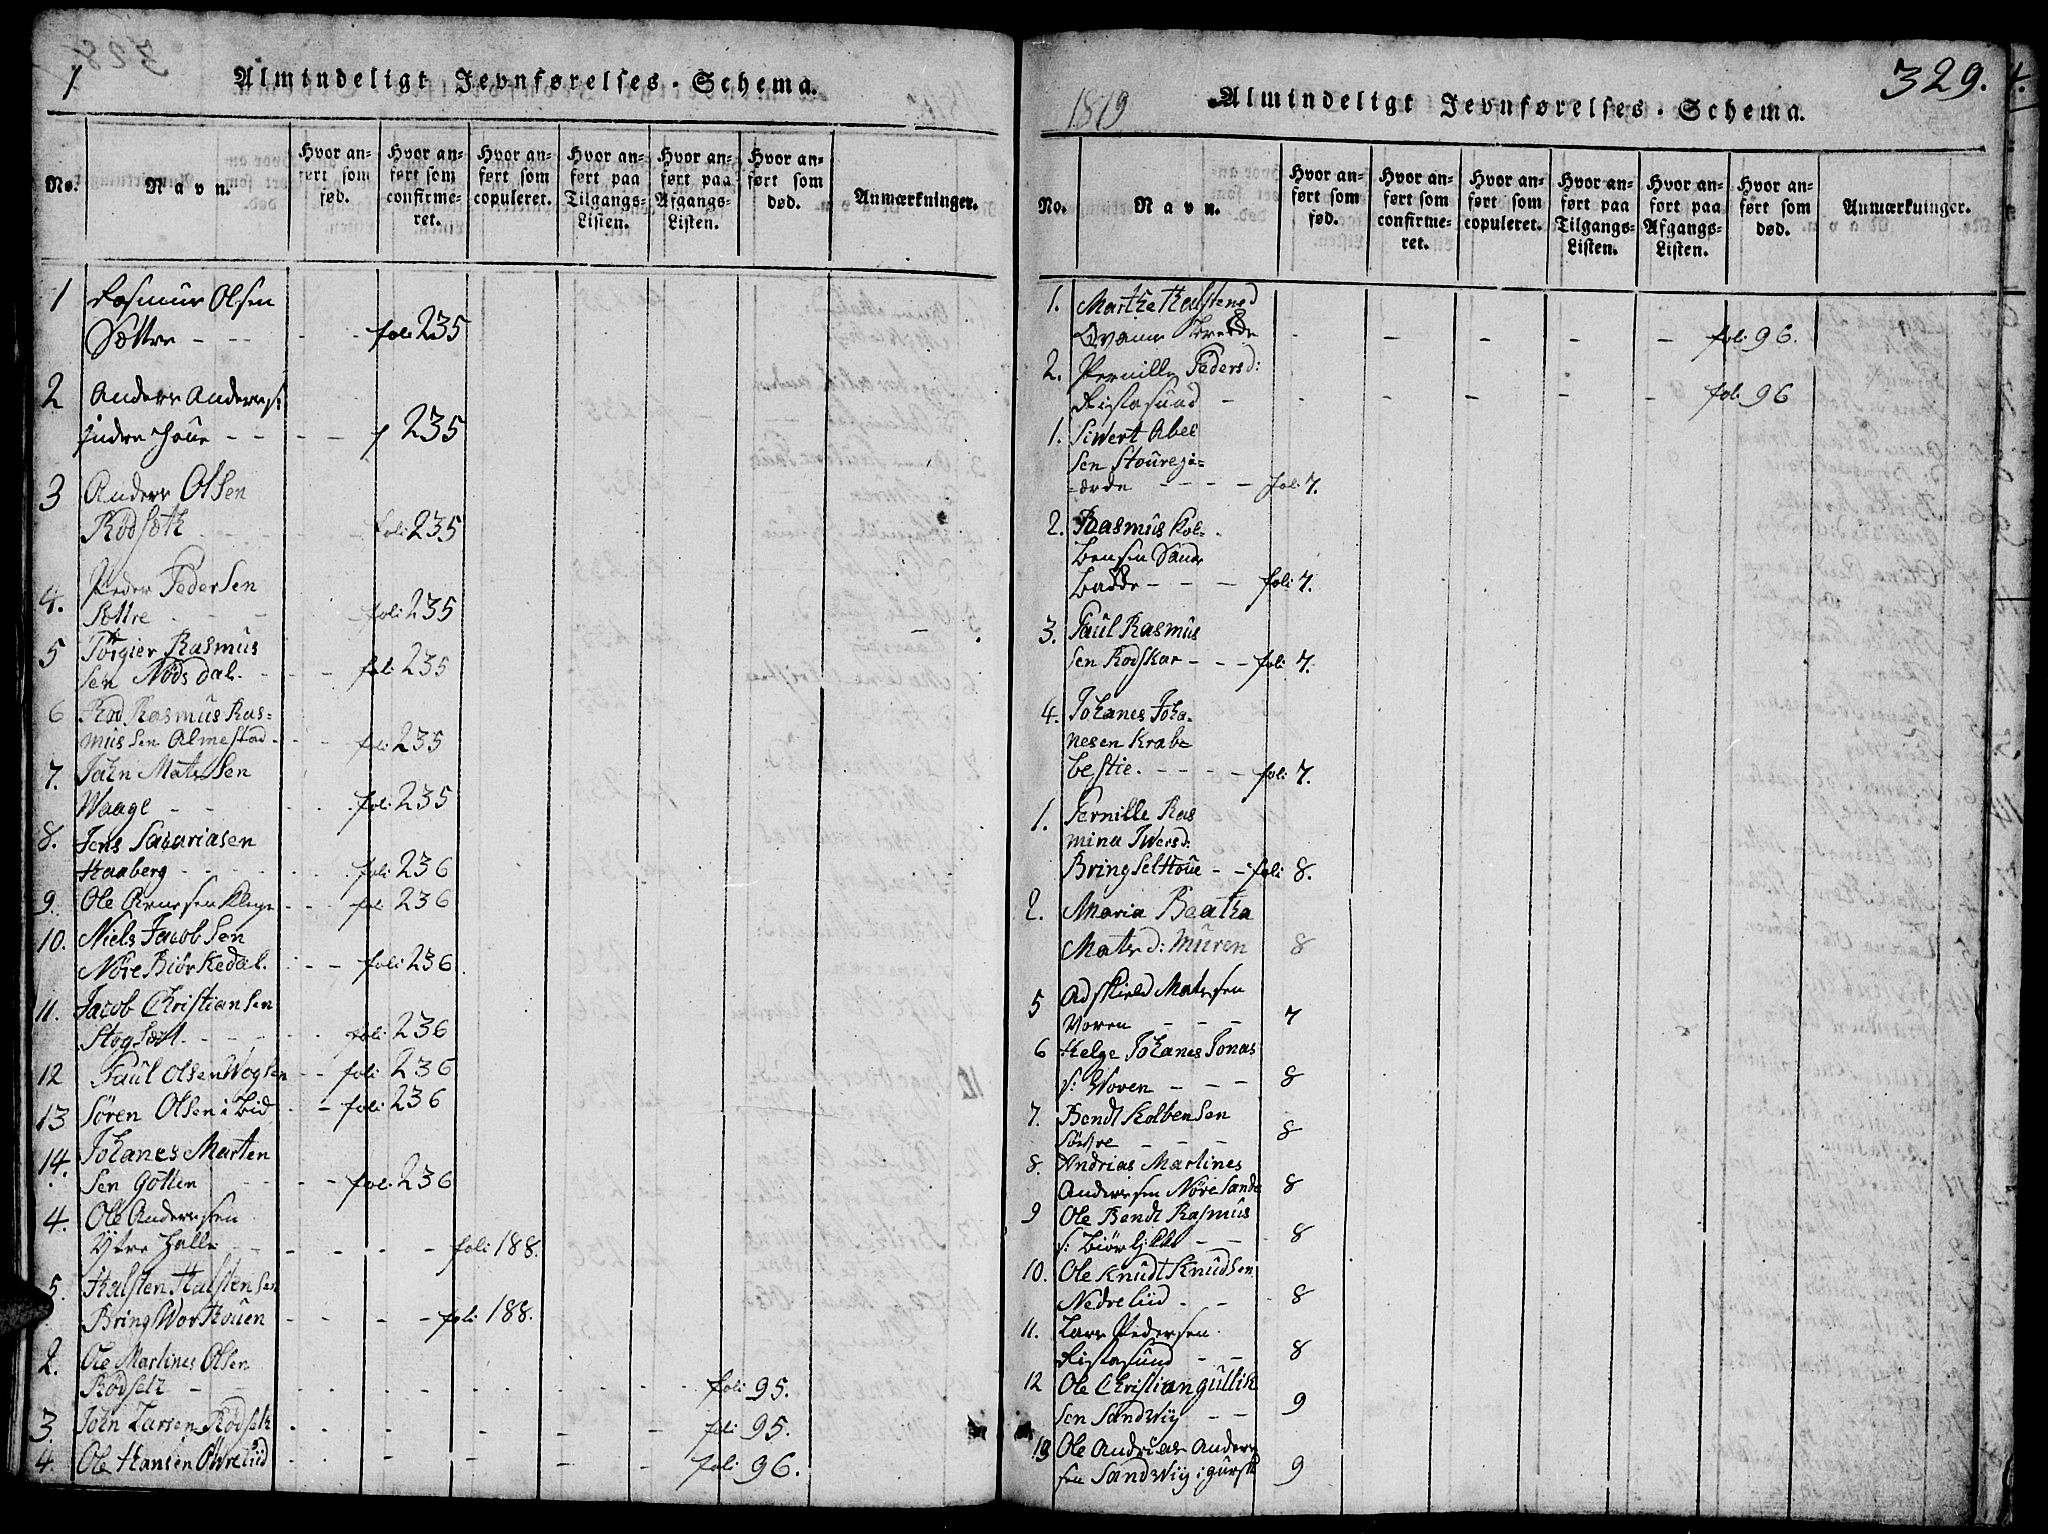 1 Almindeligt Jevnførelses-Schema.
No. Navn. Hvor anført som fød. Hvor anført som confirmeret. Hvor anført som copuleret. Hvor anført paa Tilgangs-Listen. Hvor anført paa Afgangs-Listen. Hvor anført som død. Anmærkninger.
1 Rasmus Olsen
Sættre - - - - - foli 235
2 Anders Anders:
Indre - - - - f 235
3 Anders Olsen
Rødsæth - - - foli 235
4. Peder Pedersen
Sættre - - foli 235
5 Torgier Rasmus
sen Nødsdal. - - foli 235
6 Rasmus Ras=
mussen Almestad - - - foli 235
7. John Matssen
Waage - - - foli 235
8. Jens Sacariasen
Haaberg - - - foli 236
9. Ole - - - foli 236
10. Niels Jacobsen
Nøre Biørkedal. - - foli 236.
11. Jacob Christiansen
- - - foli 236
12 Paul Olsen - - foli 236
13 Søren Olsen i Lid - - foli 236
14. Johanes Marten
sen Gotten - - - foli 236
4. Ole Andersen
Ytre - - - - - foli 188.
5. Halsten Halstensen
- - - - foli 188.
2. Ole Martines Olsen
Rødseth - - - - - - foli 95.
3. John Larsen Rødseth - - - - - foli 95.
4. Ole Hansen Øvrelid - - - - - foli 96.
1819 Almindeligt Jevnførelses-Schema. 329.
No. Navn. Hvor anført som fød. Hvor anført som confirmeret. Hvor anført som copuleret. Hvor anført paa Tilgangs-Listen. Hvor anført paa Afgangs-Listen. Hvor anført som død. Anmærkninger.
1. Marthe Halstensd
- - - - - foli 96.
2. Pernille Pedersd:
Ristesund - - - - - - foli 96
1. Siwert Abel
sen Stouregi=
=ærde - - - - foli 7.
2. Rasmus Kol=
bensen Sande
- - - foli 7.
3. Paul Rasmus
sen Rodskar - - - foli 7.
4. Johanes Joha-
nesen Krabe=
bestie. - - - - foli 7.
1. Pernille Ras
mina Iwersd:
Bringsel - - foli 8.
2. Maria Beatha
Matsd: Muren 8
5 Adskield Matssen
Voren - - - 7
6 Helge Johanes Jonas
s: Woren - - - 8
7. Bendt Kolbensen
Søvre - - - 8
8. Andrias Martines
Andersen Nøre Sande 8
9 Ole Bendt Rasmus
s: - - - 8
10. Ole Knudt Knudsen
Nedrelid - - - 8
11. Lars Pedersen
Ristesund - - 8
12 Ole Christian Gullik
sen Sandwiig - - 9
13 Ole Andreas Anders
sen Sandwiig i 9